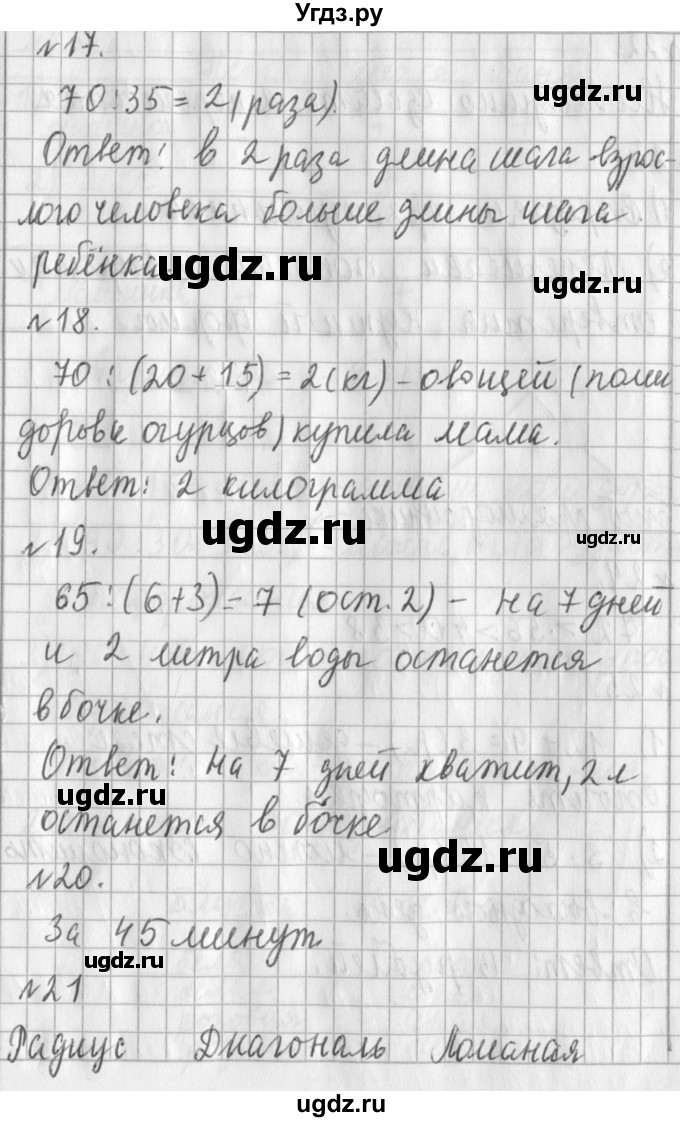 Угдз.ру
№17.
70:35=2(раза).
ugdz.ru
Ответ: в 2 раза длина шага взрос-
лого человека больше длины шага
ребёнка.
ugdz.ru
ugdz.ru
№18.
70:(20+15)=2(кг)-овощей (поми
доров и огурцов) купила мама.
Ответ: 2 килограмма
ugdz.ru
№19.
65:(6+3)=7 (ост.2)- на 7 дней
и 2 литра воды останется
в бочке.
Ответ: на 7 дней хватит, 2 л
ugdz.ru
останется в бочке
ugdz.ru
№20.
За 45 минут.
ugdz.ru
№21
Радиус Диагональ Ломаная
ugdz.ru